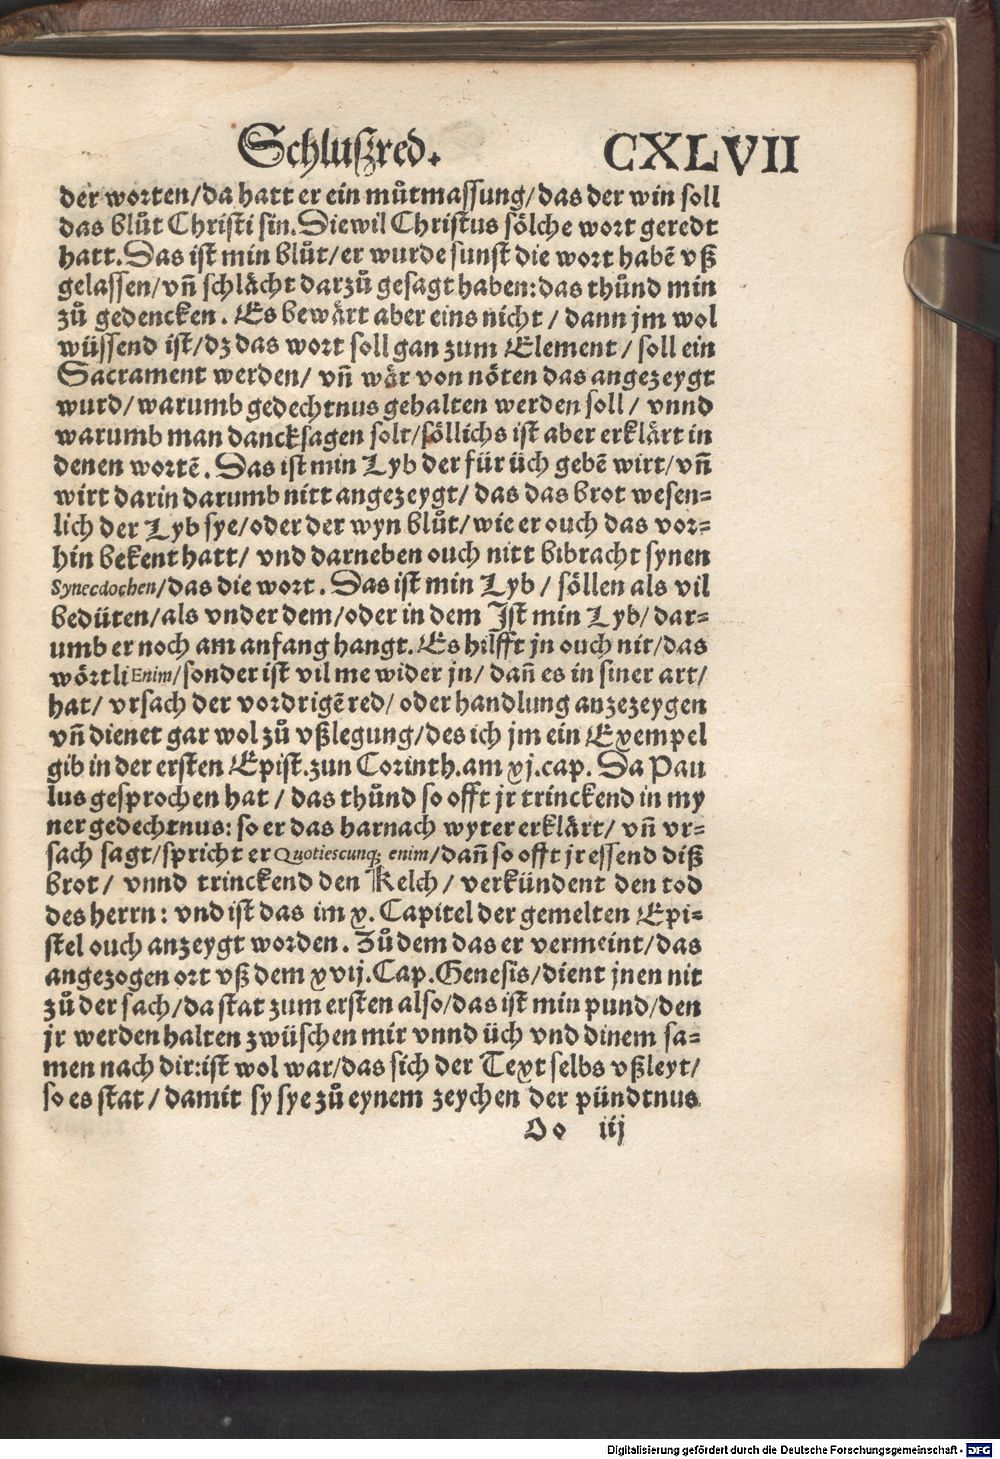 Schlußred. CXLVII
der worten/da hatt er ein můtmassung/das der win soll
das blůt Christi sin. Diewil Christus sölche wort geredt
hatt. Das ist min blůt/er wurde sunst die wort habē vß
gelassen/vñ schlächt darzů gesagt haben: das thůnd min
zů gedencken. Es bewärt aber eins nicht/dann jm wol
wüssend ist/dz das wort soll gan zum Element/soll ein
Sacrament werden/vñ wär von nöten das angezeygt
wurd/warumb gedechtnus gehalten werden soll/vnnd
warumb man dancksagen solt/söllichs ist aber erklärt in
denen wortē. Das ist min Lyb der für üch gebē wirt/vñ
wirt darin darumb nitt angezeygt/das das brot wesen-
lich der Lyb sye/oder der wyn blůt/wie er ouch das vor-
hin bekent hatt/vnd darneben ouch nitt bibracht synen
Synecdochen/das die wort. Das ist min Lyb/söllen als vil
bedüten/als vnder dem/oder in dem Ist min Lyb/dar-
umb er noch am anfang hangt. Es hilfft jn ouch nit/das
wörtli Enim/sonder ist vil me wider jn/dañ es in siner art/
hat/vrsach der vordrigē red/oder handlung anzezeygen
vñ dienet gar wol zů vßlegung/des ich jm ein Exempel
gib in der ersten Epist. zun Corinth. am xj. cap. Da Pau
lus gesprochen hat/das thůnd so offt jr trinckend in my
ner gedechtnus: so er das harnach wyter erklärt/vñ vr-
sach sagt/spricht er Quotiescunq; enim/dañ so offt jr essend diß
brot/vnnd trinckend den Kelch/verkündent den tod
des herrn: vnd ist das im x. Capitel der gemelten Epi-
stel ouch anzeygt worden. Zů dem das er vermeint/das
angezogen ort vß dem xvij. Cap. Genesis/dient jnen nit
zů der sach/da stat zum ersten also/das ist min pund/den
jr werden halten zwüschen mir vnnd üch vnd dinem sa-
men nach dir: ist wol war/das sich der Text selbs vßleyt/
so es stat/damit sy sye zů eynem zeychen der pündtnus
Oo iij
Digitalisierung gefördert durch die Deutsche Forschungsgemeinschaft - DFG